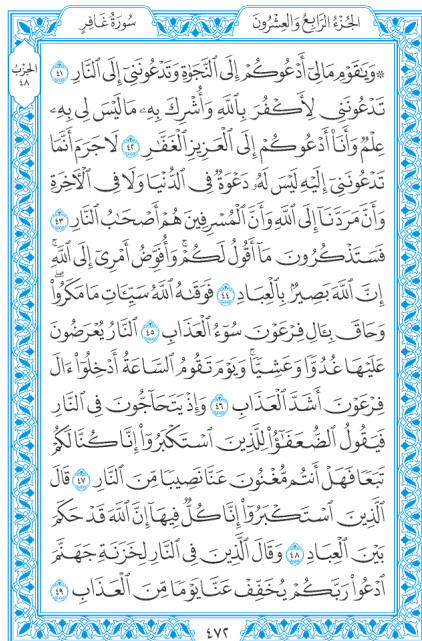 الجُزْءُ الرَّابِعُ وَالعِشْرُونَ
سُورَةُ غَافِرٍ
الحِزْبُ
٤٨
۞ وَيَٰقَوْمِ مَالِيٓ أَدْعُوكُمْ إِلَى ٱلنَّجَوٰةِ وَتَدْعُونَنِيٓ إِلَى ٱلنَّارِ ٤١
تَدْعُونَنِي لِأَكْفُرَ بِٱللَّهِ وَأُشْرِكَ بِهِۦ مَا لَيْسَ لِي بِهِۦ
عِلْمٌ وَأَنَا۠ أَدْعُوكُمْ إِلَى ٱلْعَزِيزِ ٱلْغَفَّٰرِ ٤٢ لَا جَرَمَ أَنَّمَا
تَدْعُونَنِيٓ إِلَيْهِ لَيْسَ لَهُۥ دَعْوَةٌ فِي ٱلدُّنْيَا وَلَا فِي ٱلْأٓخِرَةِ
وَأَنَّ مَرَدَّنَآ إِلَى ٱللَّهِ وَأَنَّ ٱلْمُسْرِفِينَ هُمْ أَصْحَٰبُ ٱلنَّارِ ٤٣
فَسَتَذْكُرُونَ مَآ أَقُولُ لَكُمْۚ وَأُفَوِّضُ أَمْرِيٓ إِلَى ٱللَّهِۚ
إِنَّ ٱللَّهَ بَصِيرٌۢ بِٱلْعِبَادِ ٤٤ فَوَقَىٰهُ ٱللَّهُ سَيِّـَٔاتِ مَا مَكَرُواْۖ
وَحَاقَ بِـَٔالِ فِرْعَوْنَ سُوٓءُ ٱلْعَذَابِ ٤٥ ٱلنَّارُ يُعْرَضُونَ
عَلَيْهَا غُدُوّٗا وَعَشِيّٗاۚ وَيَوْمَ تَقُومُ ٱلسَّاعَةُ أَدْخِلُوٓاْ ءَالَ
فِرْعَوْنَ أَشَدَّ ٱلْعَذَابِ ٤٦ وَإِذْ يَتَحَآجُّونَ فِي ٱلنَّارِ
فَيَقُولُ ٱلضُّعَفَٰٓؤُاْ لِلَّذِينَ ٱسْتَكْبَرُوٓاْ إِنَّا كُنَّا لَكُمْ
تَبَعٗا فَهَلْ أَنتُم مُّغْنُونَ عَنَّا نَصِيبٗا مِّنَ ٱلنَّارِ ٤٧ قَالَ
ٱلَّذِينَ ٱسْتَكْبَرُوٓاْ إِنَّا كُلٌّ فِيهَآ إِنَّ ٱللَّهَ قَدْ حَكَمَ
بَيْنَ ٱلْعِبَادِ ٤٨ وَقَالَ ٱلَّذِينَ فِي ٱلنَّارِ لِخَزَنَةِ جَهَنَّمَ
ٱدْعُواْ رَبَّكُمْ يُخَفِّفْ عَنَّا يَوْمٗا مِّنَ ٱلْعَذَابِ ٤٩
٤٧٢